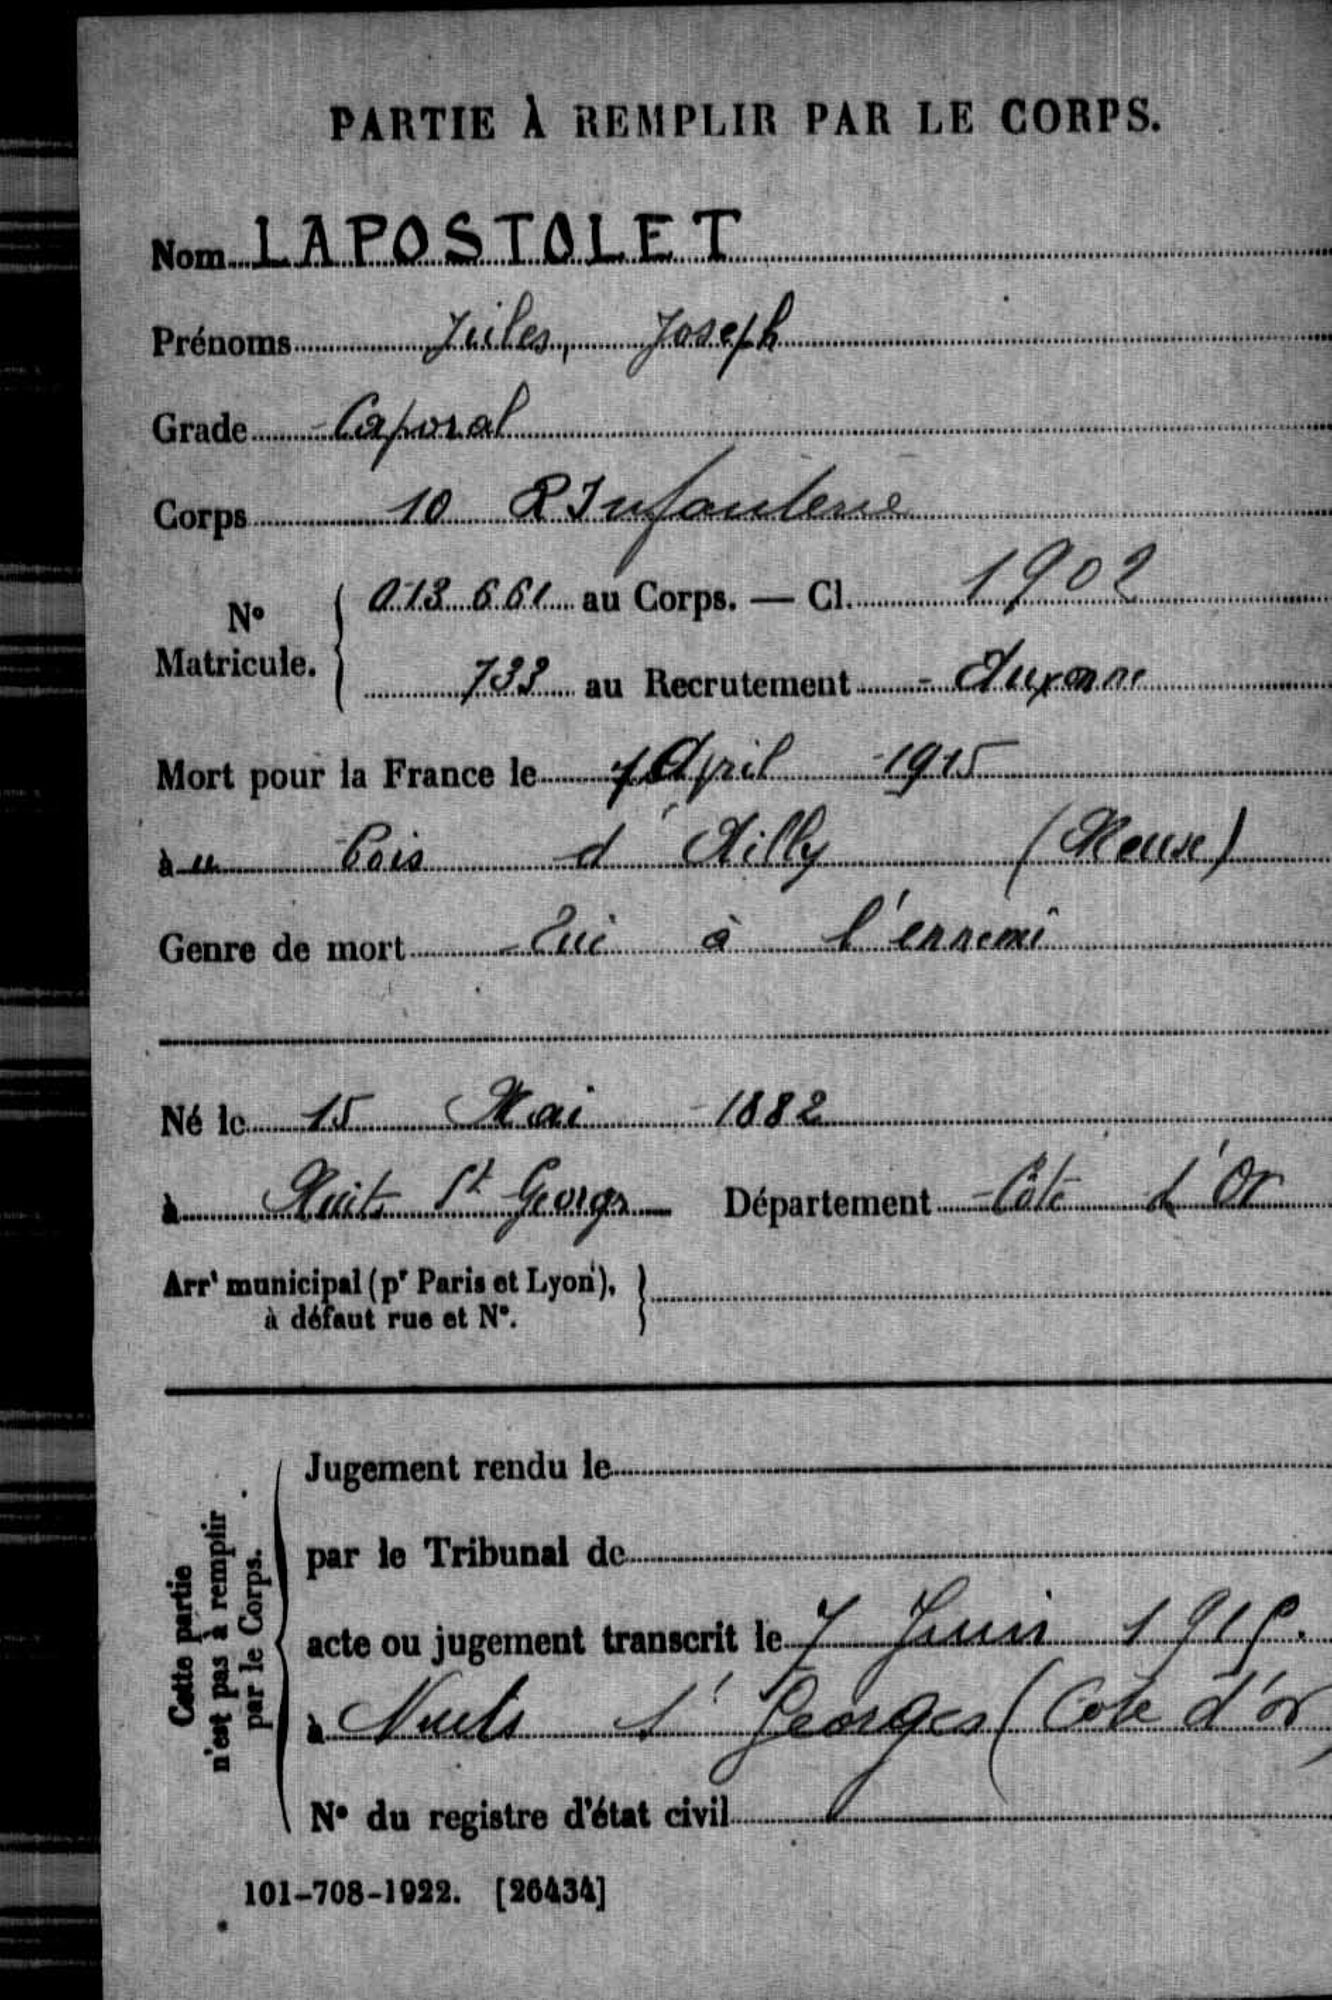 PARTIE À REMPLIR PAR LE CORPS.
Nom LAPOSTOLET
Prénoms Jules, Joseph
Grade Caporal
Corps 10 R Infanterie
N° Matricule. 013 661 au Corps. — Cl. 1902
733 au Recrutement Auxonne
Mort pour la France le 7 April 1915
à u Bois d'Ailly (Meuse)
Genre de mort Tué à l'ennemi
Né le 15 Mai 1882
à Nuits St Georges Département Côte d'Or
Arrt municipal (pr Paris et Lyon),
à défaut rue et N°.
Cette partie
n'est pas à remplir
par le Corps.
Jugement rendu le
par le Tribunal de
acte ou jugement transcrit le 7 Juin 1915.
à Nuits St Georges (Cote d'or)
N° du registre d'état civil
101-708-1922. [26434]